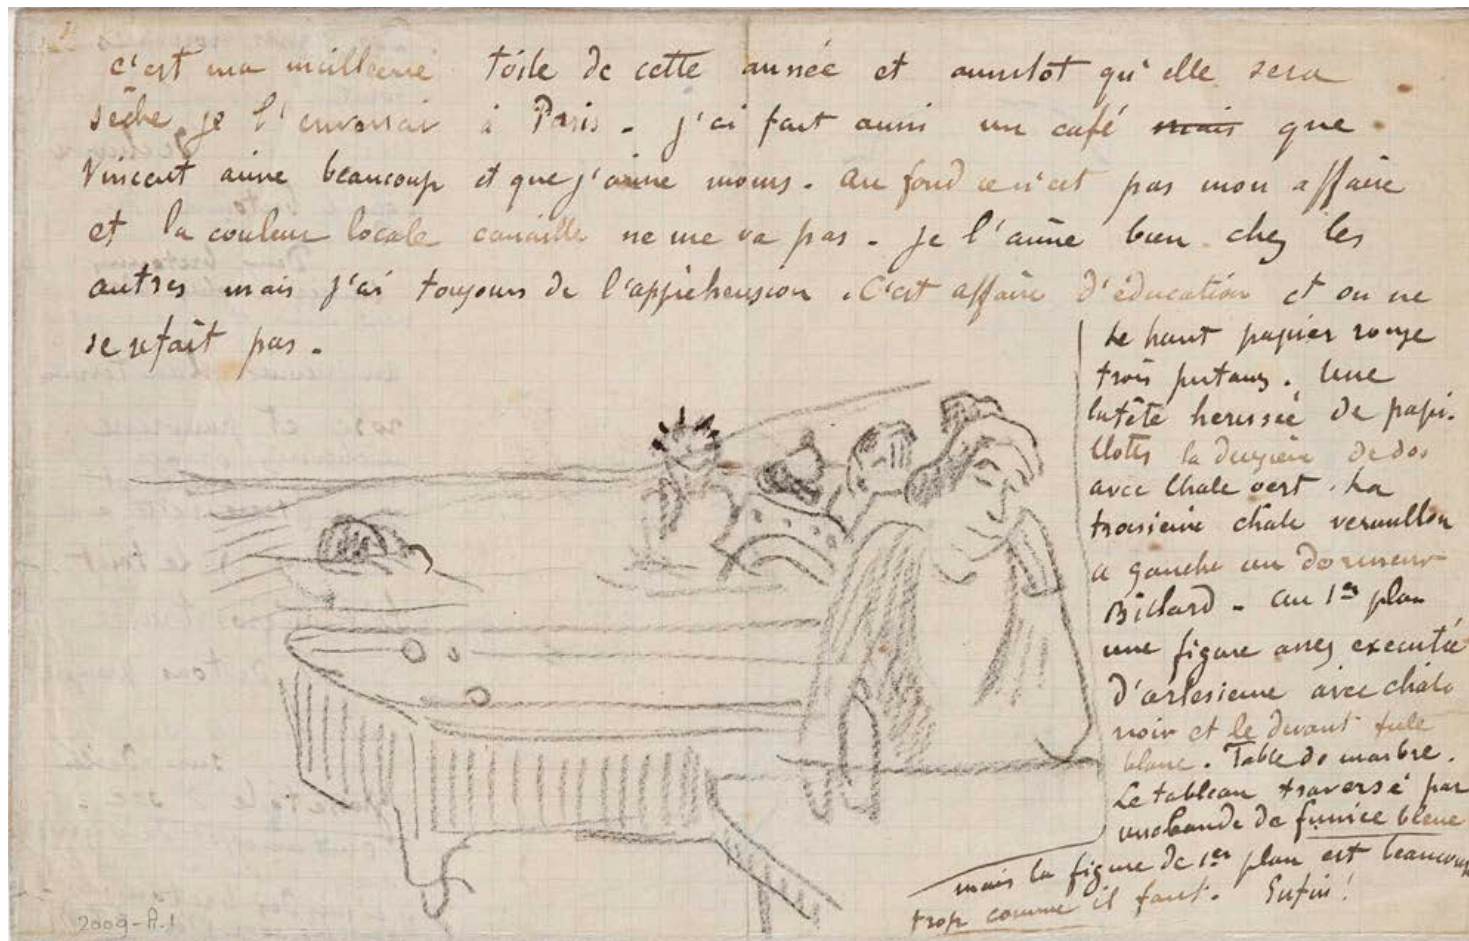 c'est ma meilleure toile de cette année et aussitot qu'elle sera
sèche je l'enverrai à Paris - j'ai fait aussi un café mais que
Vincent aime beaucoup et que j'aime moins. Au fond ce n'est pas mon affaire
et la couleur locale canaille ne me va pas - je l'aime bien chez les
autres mais j'ai toujours de l'appréhension. C'est affaire d'éducation et on ne
se refait pas -
Le haut papier rouge
trois putains. Une
la tête herissée de papi-
llotes la deuxième de dos
avec chale vert. La
troisieme chale vermillon
a gauche un dormeur
Billard - Au 1er plan
une figure assez executée
d'arlesienne avec chale
noir et le devant tule
blanc. Table de marbre.
Le tableau traversé par
une bande de fumée bleue
mais la figure de 1er plan est beaucoup
trop comme il faut. Enfin!
2009-A.1